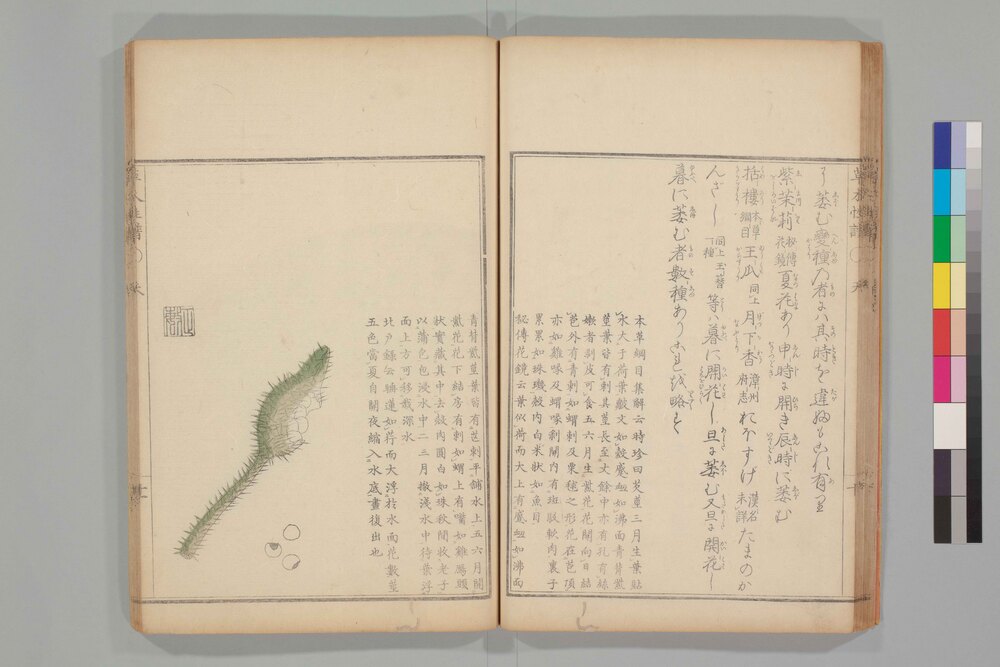 り萎む變種の者は其時を違ふもの有里
紫茉莉秘傳花鏡夏花あり申時に開き辰時に萎む
栝樓本草綱目王瓜同上月下香漳州府志れぶすげ漢名未詳たまのか
んざし同上玉簪一種等ハ暮に開花し旦に萎む又旦に開花し
暮に萎む者數種あり
本草綱目集解云時珍曰芡莖三月生葉貼
水大于荷葉皺文如縠蹙衄如沸面青背紫
莖葉皆有刺其莖長至丈餘中亦有孔有絲
嫩者剥皮可食五六月生紫花花開向日結
苞外有青刺如蝟刺及栗毬之形花在苞頂
亦如雞喙及蝟喙剥開内有斑駁軟肉裹子
累累如珠璣殻内白米狀如魚目
秘傳花鏡云葉似荷而大上有蹙衄如沸而
青背紫莖葉皆有芒刺平鋪水上五六月開
紫花花下結房有刺如蝟上有嘴如雞鴈頭
狀實藏其中去殻肉圓白如珠秋間收老子
以蒲包包浸水中二三月撒淺水中待葉浮
面上方可移栽深水
北戸録云睡蓮如荇而大浮於水面花數葉
五色當夏自開夜縮入水底晝復出也